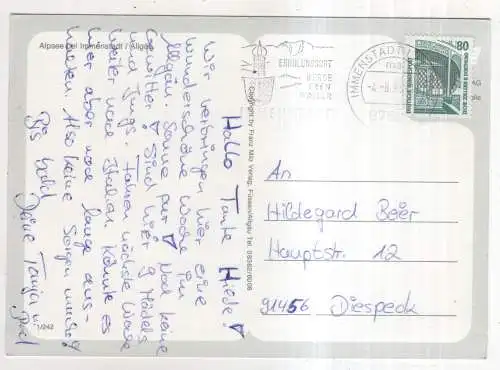 Alpsee bei Immenstadt / Allgäu
Hallo Tante Hiede!
Wir verbringen hier eine
wunderschöne Woche im
Allgäu. Sonne pur! Noch keine
Gewitter! Sind hier 9 Mädels
und Jungs. Fahren nächste Woche
weiter nach Italien. Könnte es
hier aber noch lange aus-
halten. Also keine Sorgen
Bis bald
Deine Tanja u.
1/242
Copyright by Franz Milz Verlag, Füssen/Allgäu Tel.
ERHOLUNGSORT
BERGE
SEEN
WÄLDER
IMMENSTADT
80
DEUTSCHE BUNDESPOST
An
Hildegard Beier
Hauptstr. 12
91456 Diespeck